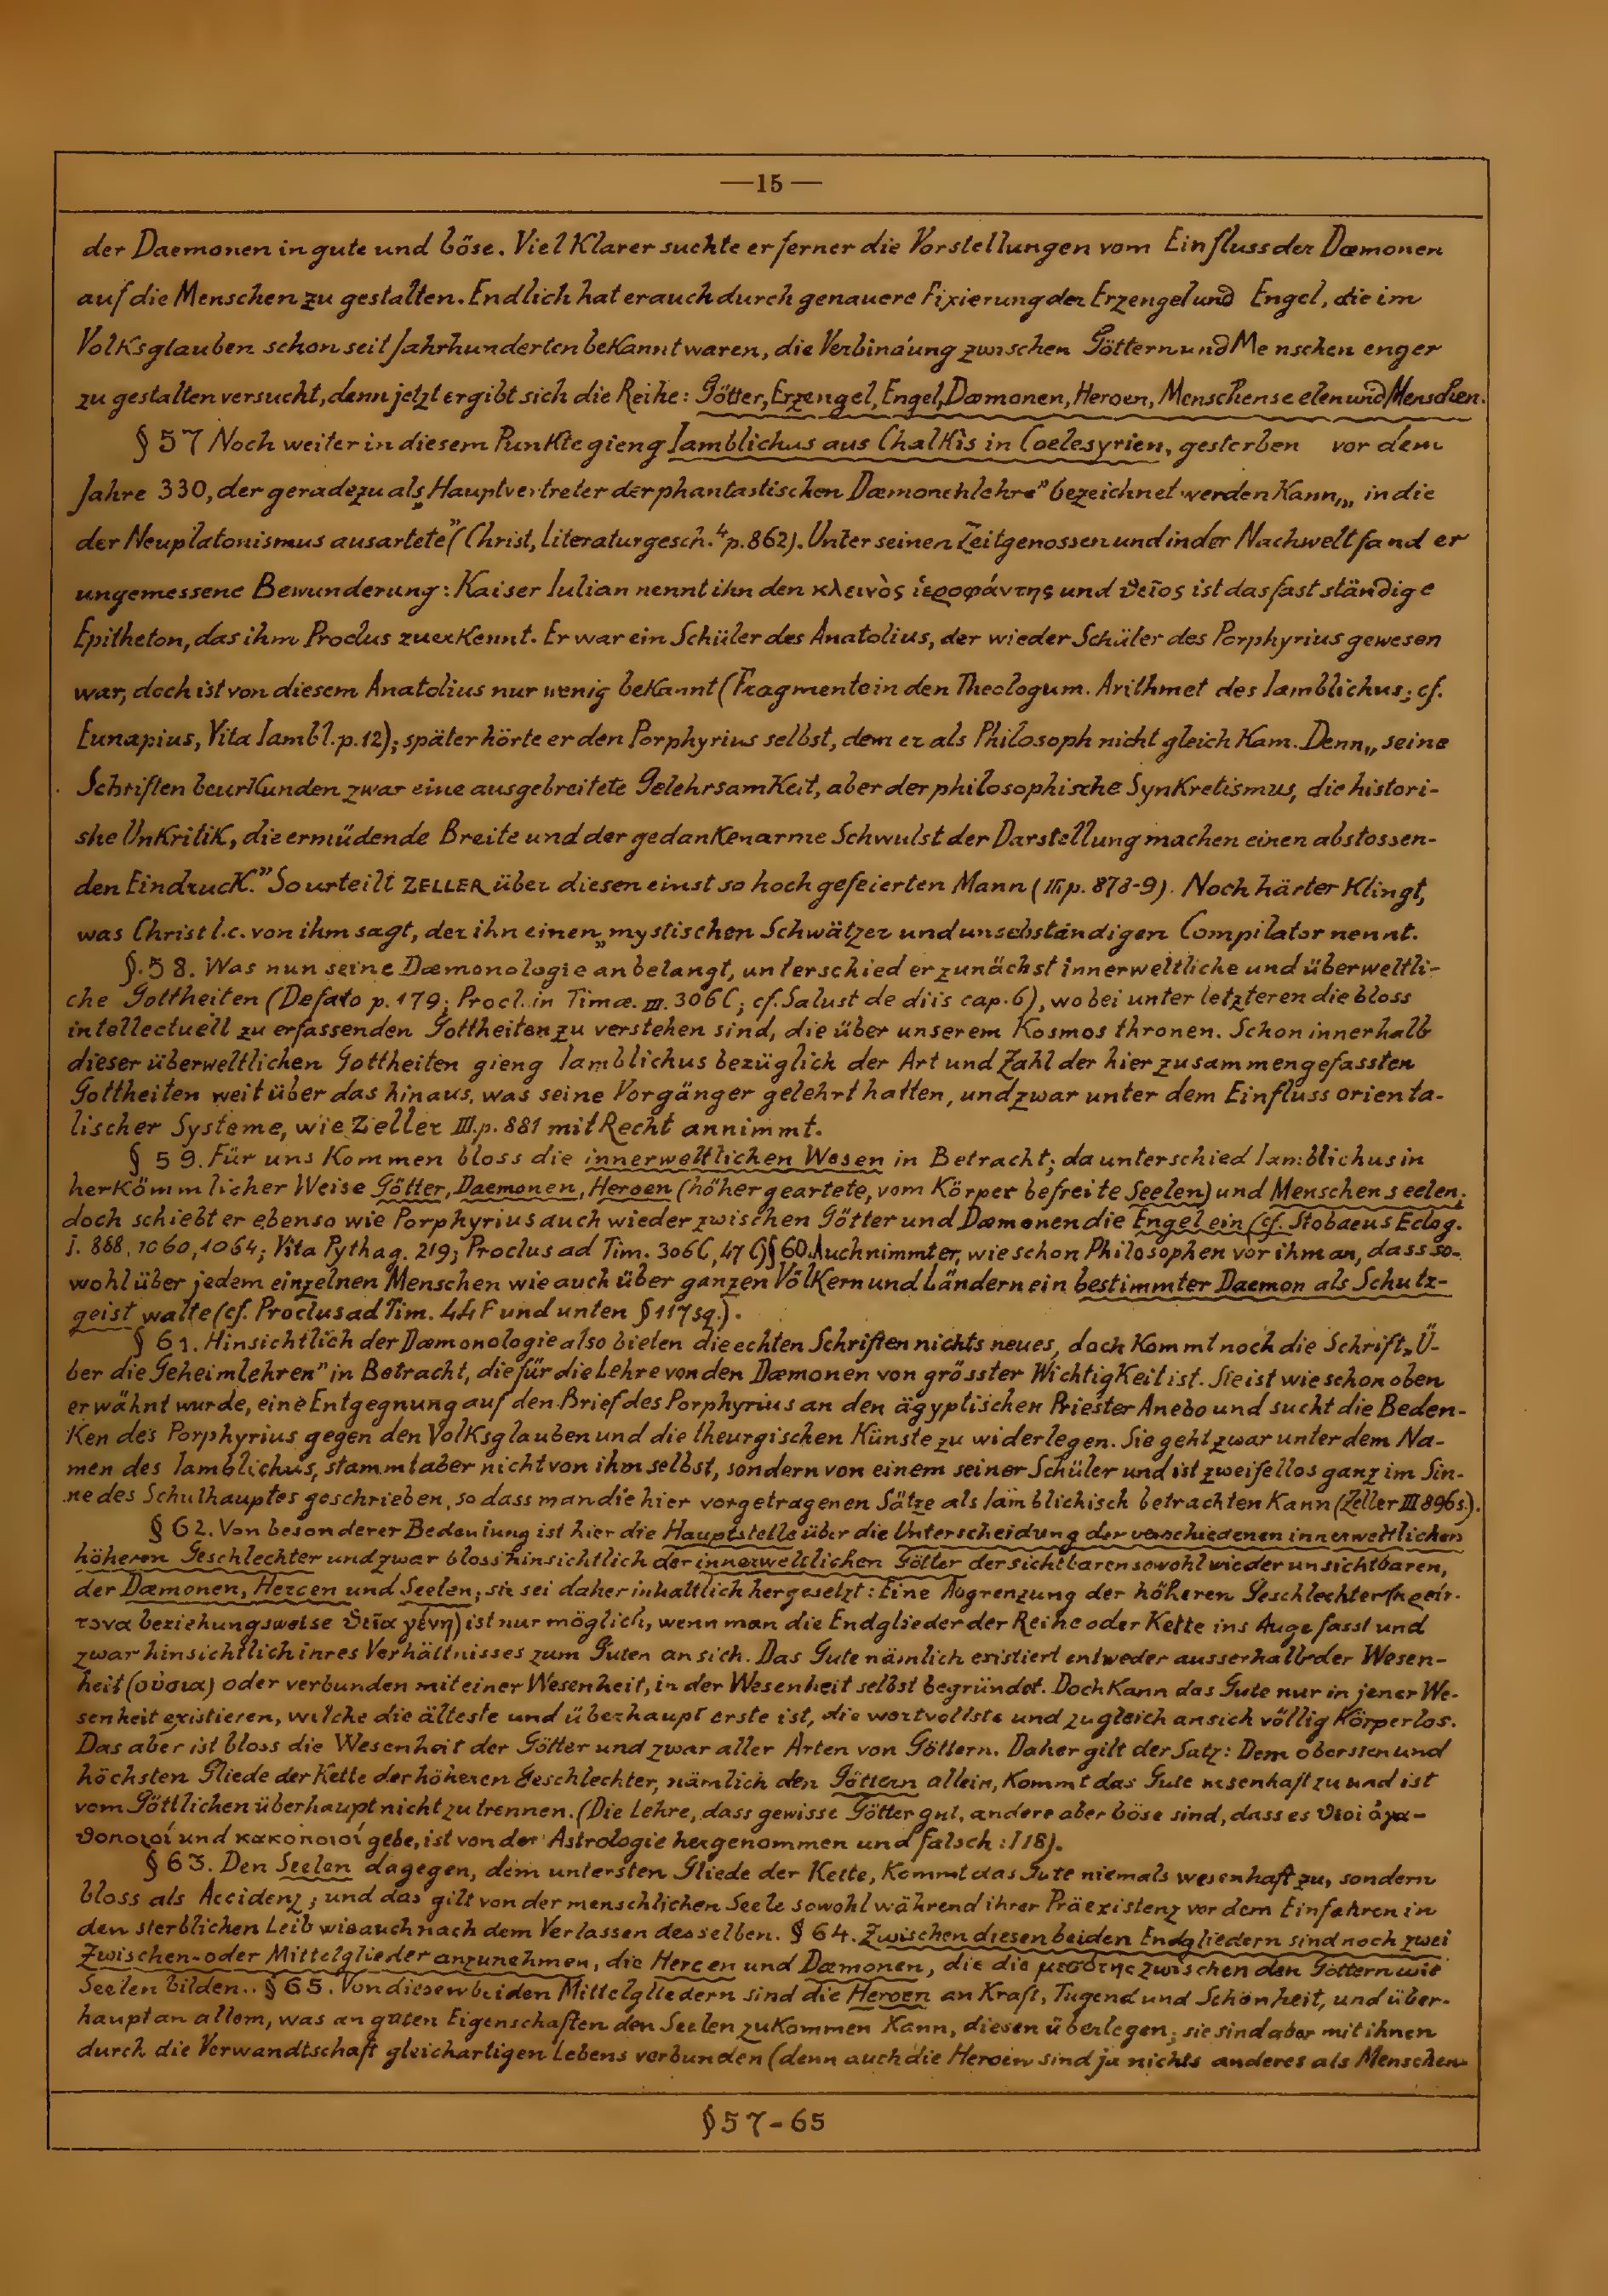 —15—
der Daemonen in gute und böse. Viel Klarer suchte er ferner die Vorstellungen vom Einfluss der Dæmonen
auf die Menschen zu gestalten. Endlich hat er auch durch genauere Fixierung der Erzengel und Engel, die im
Volksglauben schon seit Jahrhunderten bekannt waren, die Verbindung zwischen Göttern und Menschen enger
zu gestalten versucht, denn jetzt ergibt sich die Reihe: Götter, Erzengel, Engel, Dæmonen, Heroen, Menschenseelen und Menschen.
§ 57 Noch weiter in diesem Punkte gieng Iamblichus aus Chalkis in Coelesyrien, gestorben vor dem
Jahre 330, der geradezu als „Hauptvertreter der phantastischen Dæmonenlehre” bezeichnet werden Kann, „in die
der Neuplatonismus ausartete” (Christ, Literaturgesch.⁴ p. 862). Unter seinen Zeitgenossen und in der Nachwelt fand er
ungemessene Bewunderung: Kaiser Iulian nennt ihn den κλεινὸς ἱεροφάντης und θεῖος ist das fast ständige
Epitheton, das ihm Proclus zuerkennt. Er war ein Schüler des Anatolius, der wieder Schüler des Porphyrius gewesen
war, doch ist von diesem Anatolius nur wenig bekannt (Fragmente in den Theologum. Arithmet des Iamblichus; cf.
Eunapius, Vita Iambl. p. 12); später hörte er den Porphyrius selbst, dem er als Philosoph nicht gleich Kam. Denn „seine
Schriften beurkunden zwar eine ausgebreitete Gelehrsamkeit, aber der philosophische Synkretismus, die histori-
she Unkritik, die ermüdende Breite und der gedankenarme Schwulst der Darstellung machen einen abstossen-
den Eindruck.” So urteilt ZELLER über diesen einst so hoch gefeierten Mann (III p. 878-9). Noch härter Klingt,
was Christ l.c. von ihm sagt, der ihn einen „mystischen Schwätzer und unselbständigen Compilator nennt.
§. 58. Was nun seine Dæmonologie anbelangt, unterschied er zunächst innerweltliche und überweltli-
che Gottheiten (De fato p. 179; Procl. in Timæ. III. 306C; cf. Salust de diis cap. 6), wobei unter letzteren die bloss
intellectuell zu erfassenden Gottheiten zu verstehen sind, die über unserem Kosmos thronen. Schon innerhalb
dieser überweltlichen Gottheiten gieng Iamblichus bezüglich der Art und Zahl der hier zusammengefassten
Gottheiten weit über das hinaus, was seine Vorgänger gelehrt hatten, und zwar unter dem Einfluss orienta-
lischer Systeme, wie Zeller III. p. 881 mit Recht annimmt.
§ 59. Für uns Kommen bloss die innerweltlichen Wesen in Betracht; da unterschied Iamblichus in
herkömmlicher Weise Götter, Daemonen, Heroen (höher geartete, vom Körper befreite Seelen) und Menschenseelen;
doch schiebt er ebenso wie Porphyrius auch wieder zwischen Götter und Dæmonen die Engel ein (cf. Stobaeus Eclog.
I. 868, 1060, 1064; Vita Pythag. 219; Proclus ad Tim. 306C, 47 G) § 60. Auch nimmt er, wie schon Philosophen vor ihm an, dass so-
wohl über jedem einzelnen Menschen wie auch über ganzen Völkern und Ländern ein bestimmter Daemon als Schutz-
geist walte (cf. Proclus ad Tim. 44 F und unten § 117 sq.).
§ 61. Hinsichtlich der Dæmonologie also bieten die echten Schriften nichts neues, doch Kommt noch die Schrift „Ü-
ber die Geheimlehren” in Betracht, die für die Lehre von den Dæmonen von grösster Wichtigkeit ist. Sie ist wie schon oben
erwähnt wurde, eine Entgegnung auf den Brief des Porphyrius an den ägyptischen Priester Anebo und sucht die Beden-
Ken des Porphyrius gegen den Volksglauben und die theurgischen Künste zu widerlegen. Sie geht zwar unter dem Na-
men des Iamblichus, stammt aber nicht von ihm selbst, sondern von einem seiner Schüler und ist zweifellos ganz im Sin-
ne des Schulhauptes geschrieben, so dass man die hier vorgetragenen Sätze als Iamblichisch betrachten Kann (Zeller III 896 s.).
§ 62. Von besonderer Bedeutung ist hier die Hauptstelle über die Unterscheidung der verschiedenen innerweltlichen
höheren Geschlechter und zwar bloss hinsichtlich der innerweltlichen Götter der sichtbaren sowohl wie der unsichtbaren,
der Dæmonen, Heroen und Seelen; sie sei daher inhaltlich hergesetzt: Eine Abgrenzung der höheren Geschlechter (κρείτ-
τονα beziehungsweise θεῖα γένη) ist nur möglich, wenn man die Endglieder der Reihe oder Kette ins Auge fasst und
zwar hinsichtlich ihres Verhältnisses zum Guten an sich. Das Gute nämlich existiert entweder ausserhalb der Wesen-
heit (οὐσια) oder verbunden mit einer Wesenheit, in der Wesenheit selbst begründet. Doch Kann das Gute nur in jener We-
senheit existieren, welche die älteste und überhaupt erste ist, die wertvollste und zugleich an sich völlig Körperlos.
Das aber ist bloss die Wesenheit der Götter und zwar aller Arten von Göttern. Daher gilt der Satz: Dem obersten und
höchsten Gliede der Kette der höheren Geschlechter, nämlich den Göttern allein, Kommt das Gute wesenhaft zu und ist
vom Göttlichen überhaupt nicht zu trennen. (Die Lehre, dass gewisse Götter gut, andere aber böse sind, dass es θεοὶ ἀγα-
θοποιοί und κακοποιοί gebe, ist von der Astrologie hergenommen und falsch: I 18).
§ 63. Den Seelen dagegen, dem untersten Gliede der Kette, Kommt das Gute niemals wesenhaft zu, sondern
bloss als Accidenz; und das gilt von der menschlichen Seele sowohl während ihrer Präexistenz vor dem Einfahren in
den sterblichen Leib wie auch nach dem Verlassen desselben. § 64. Zwischen diesen beiden Endgliedern sind noch zwei
Zwischen- oder Mittelglieder anzunehmen, die Heroen und Dæmonen, die die μεσότης zwischen den Göttern wie
Seelen bilden.. § 65. Von diesen beiden Mittelgliedern sind die Heroen an Kraft, Tugend und Schönheit, und über-
haupt an allem, was an guten Eigenschaften den Seelen zukommen Kann, diesen überlegen; sie sind aber mit ihnen
durch die Verwandtschaft gleichartigen Lebens verbunden (denn auch die Heroen sind ja nichts anderes als Menschen-
§ 57-65